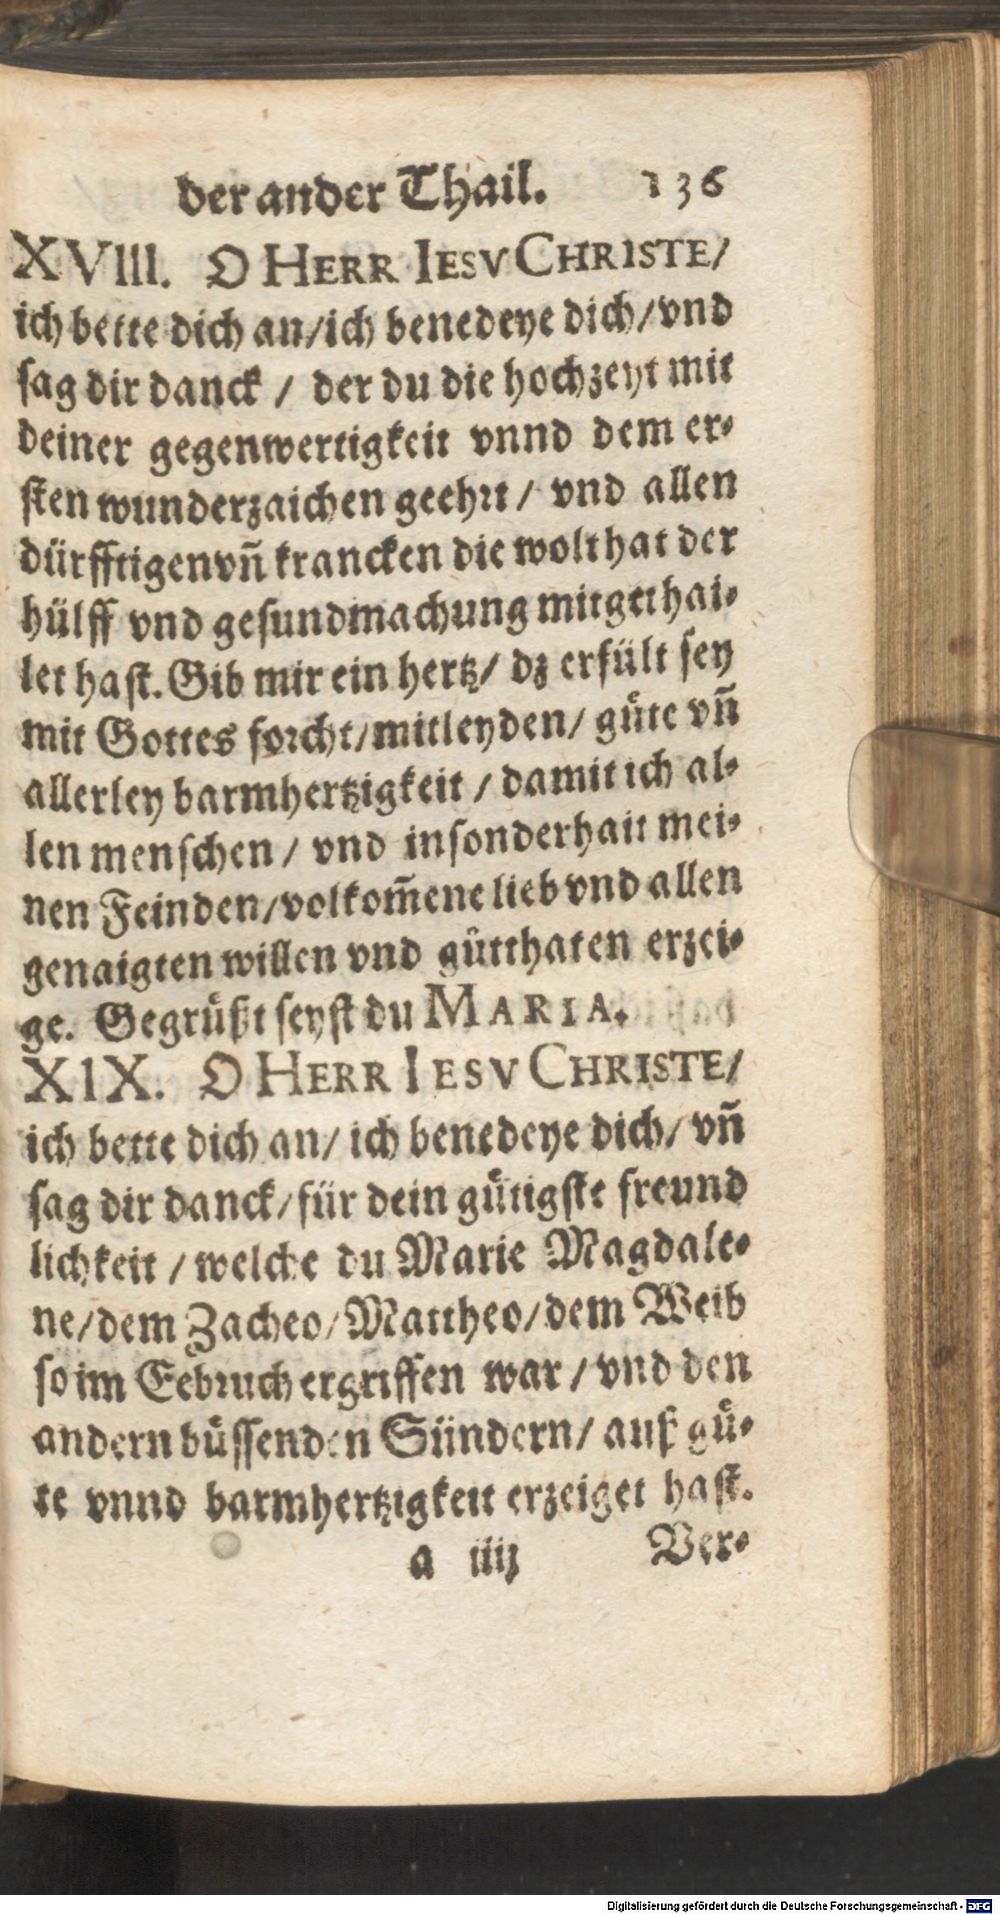 der ander Thail. 136
XVIII. O HERR IESV CHRISTE/
ich bette dich an/ich benedeye dich/vnd
sag dir danck / der du die hochzeyt mit
deiner gegenwertigkeit vnnd dem er-
sten wunderzaichen geehrt / vnd allen
dürfftigen vñ krancken die wolthat der
hülff vnd gesundmachung mitgethai-
let hast. Gib mir ein hertz/ dz erfült sey
mit Gottes forcht/mitleyden/ güte vñ
allerley barmhertzigkeit / damit ich al-
len menschen / vnd insonderhait mei-
nen Feinden/volkom̃ene lieb vnd allen
genaigten willen vnd gütthaten erzei-
ge. Gegrüßt seyst du MARIA.
XIX. O HERR IESV CHRISTE/
ich bette dich an/ ich benedeye dich/ vñ
sag dir danck/für dein gütigste freund
lichkeit / welche du Marie Magdale-
ne/dem Zacheo/Mattheo/dem Weib
so im Eebruch ergriffen war / vnd den
andern büssenden Sündern/ auß gü-
te vnnd barmhertzigkeit erzeiget hast.
a iiij Ver-
Digitalisierung gefördert durch die Deutsche Forschungsgemeinschaft - DFG